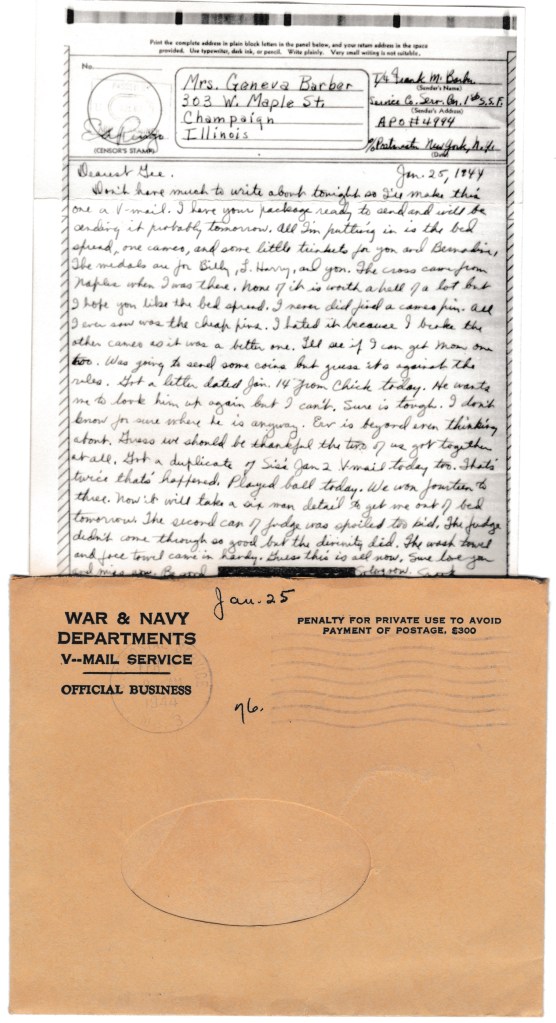 Print the complete address in plain block letters in the panel below, and your return address in the space
provided. Use typewriter, dark ink, or pencil. Write plainly. Very small writing is not suitable.
No.
(CENSOR'S STAMP)
Mrs. Geneva Barber
303 W. Maple St.
Champaign
Illinois
T/4 Frank M. Barber
(Sender's Name)
Service Co. Serv. Bn. 1st S.S.F.
(Sender's Address)
APO #4994
℅ Postmaster New York, N.Y.
(Date)
Jan. 25, 1944
Dearest Gee.
Don't have much to write about tonight so I'll make this
one a V-mail. I have your package ready to send and will be
sending it probably tomorrow. All I'm putting in is the bed
spread, one cameo, and some little trinkets for you and Bernadine,
The medals are for Billy, L. Harry, and you. The cross came from
Naples when I was there. None of it is worth a hell of a lot but
I hope you like the bed spread. I never did find a cameo pin. All
I ever saw was the cheap pins. I hated it because I broke the
other cameo as it was a better one. I'll see if I can get Mom one
too. Was going to send some coins but guess it's against the
rules. Got a letter dated Jan. 14 from Chick today. He wants
me to look him up again but I can't. Sure is tough. I don't
know for sure where he is anyway. Erv is beyond even thinking
about. Guess we should be thankful the two of us got together
at all. Got a duplicate of Sis's Jan 2 V-mail today too. That's
twice that's happened. Played ball today. We won fourteen to
three. Now it will take a six man detail to get me out of bed
tomorrow. The second can of fudge was spoiled too kid. The fudge
didn't come through so good but the divinity did. The wash towel
and face towel came in handy. Guess this is all now. Sure love you
and miss you.
Jan. 25
WAR & NAVY
DEPARTMENTS
V--MAIL SERVICE
OFFICIAL BUSINESS
PENALTY FOR PRIVATE USE TO AVOID
PAYMENT OF POSTAGE, $300
1944
76.